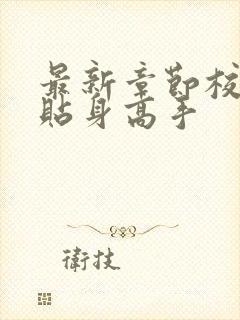 最新章節校
貼身高手
衛技